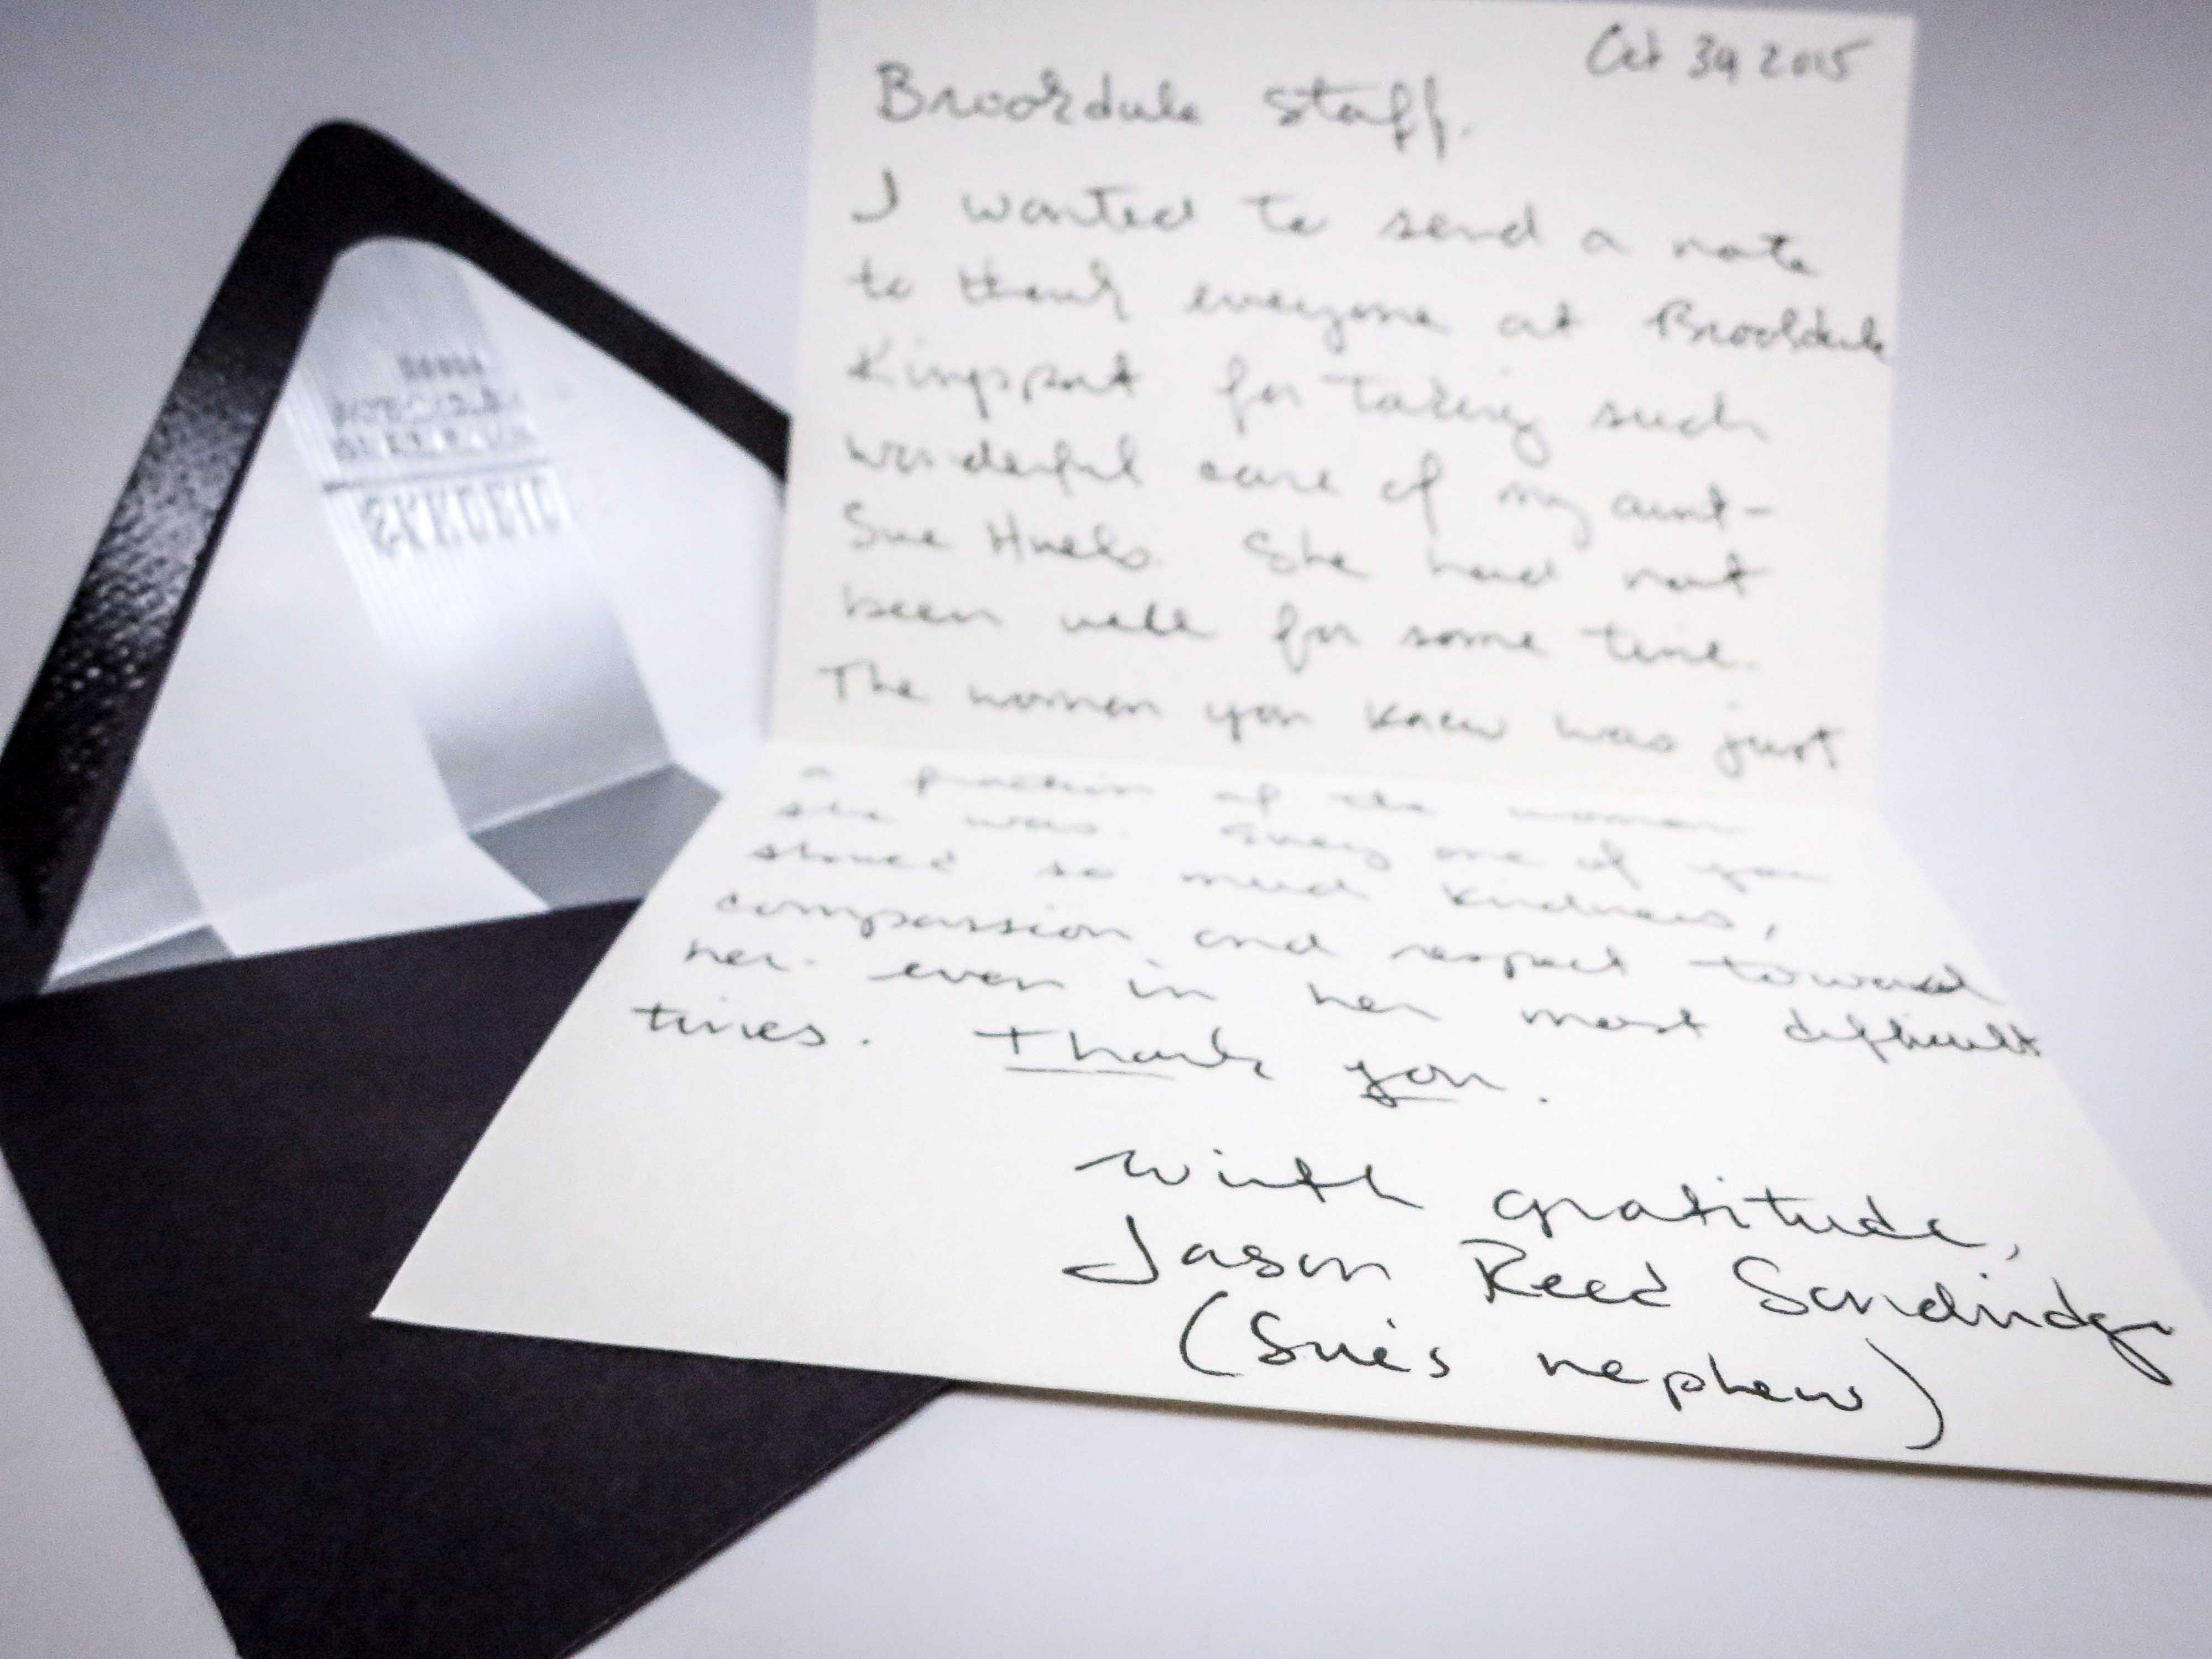 Oct 30, 2015
Brookdale Staff.
I wanted to send a note
to thank everyone at Brookdale
Kingsport for taking such
wonderful care of my aunt-
Sue Huels. She had not
been well for some time.
The woman you knew was just
a fraction of the woman
she was. Every one of you
showed so much kindness,
compassion and respect toward
her. even in her most difficult
times. Thank you.
with gratitude,
Jason Reed Sandridge
(Sue's nephew)